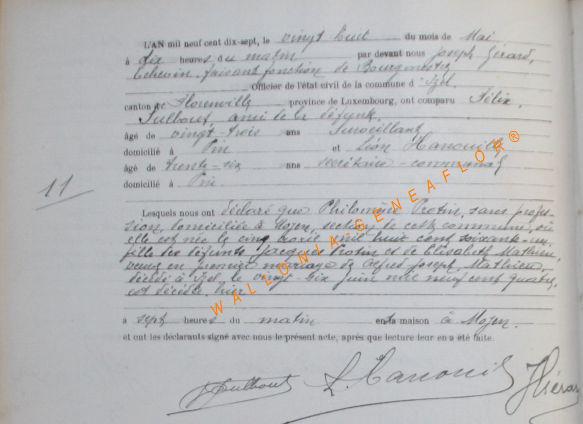 L'AN mil neuf cent dix-sept, le vingt huit du mois de Mai
à dix heures du matin par devant nous Joseph Gérard,
Echevin, faisant fonction de Bourgmestre
Officier de l'état civil de la commune d'Izel
canton de Florenville province de Luxembourg, ont comparu Félix
Fulbout, ami de la défunte
âgé de vingt-trois ans Surveillant
domicilié à Pin et Léon Hanouille
âgé de trente-six ans secrétaire-communal
domicilié à Pin
11
Lesquels nous ont déclaré que Philomène Protin, sans profes-
sion, domiciliée à Moyen, section de cette commune, où
elle est née le cinq mil huit cent soixante-un,
fille des défunts Jacques Protin et de Elisabeth Mathieu,
veuve en premier mariage de Joseph Mathieu,
décédé à Izel, le vingt-six juin mil neuf cent quatre,
est décédée hier
à sept heures du matin en la maison à Moyen.
et ont les déclarants signé avec nous le présent acte, après que lecture leur en a été faite.
L. Hanouille
WALLONIA GENEAFLOR®